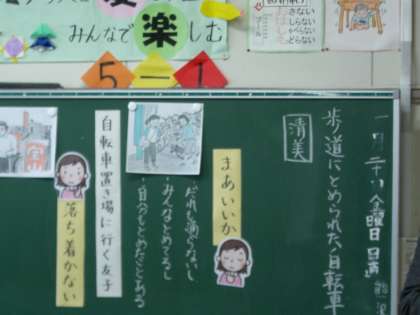 みんなで楽しむ
5-1
さない
しらない
らない
どらない
一月二十日金曜日
歩道にとめられた自転車
清美
まあいいか
・だれも通らないし
・みんなとめてるし
・自分もとめたことある
自転車置き場に行く友子
落ち着かない